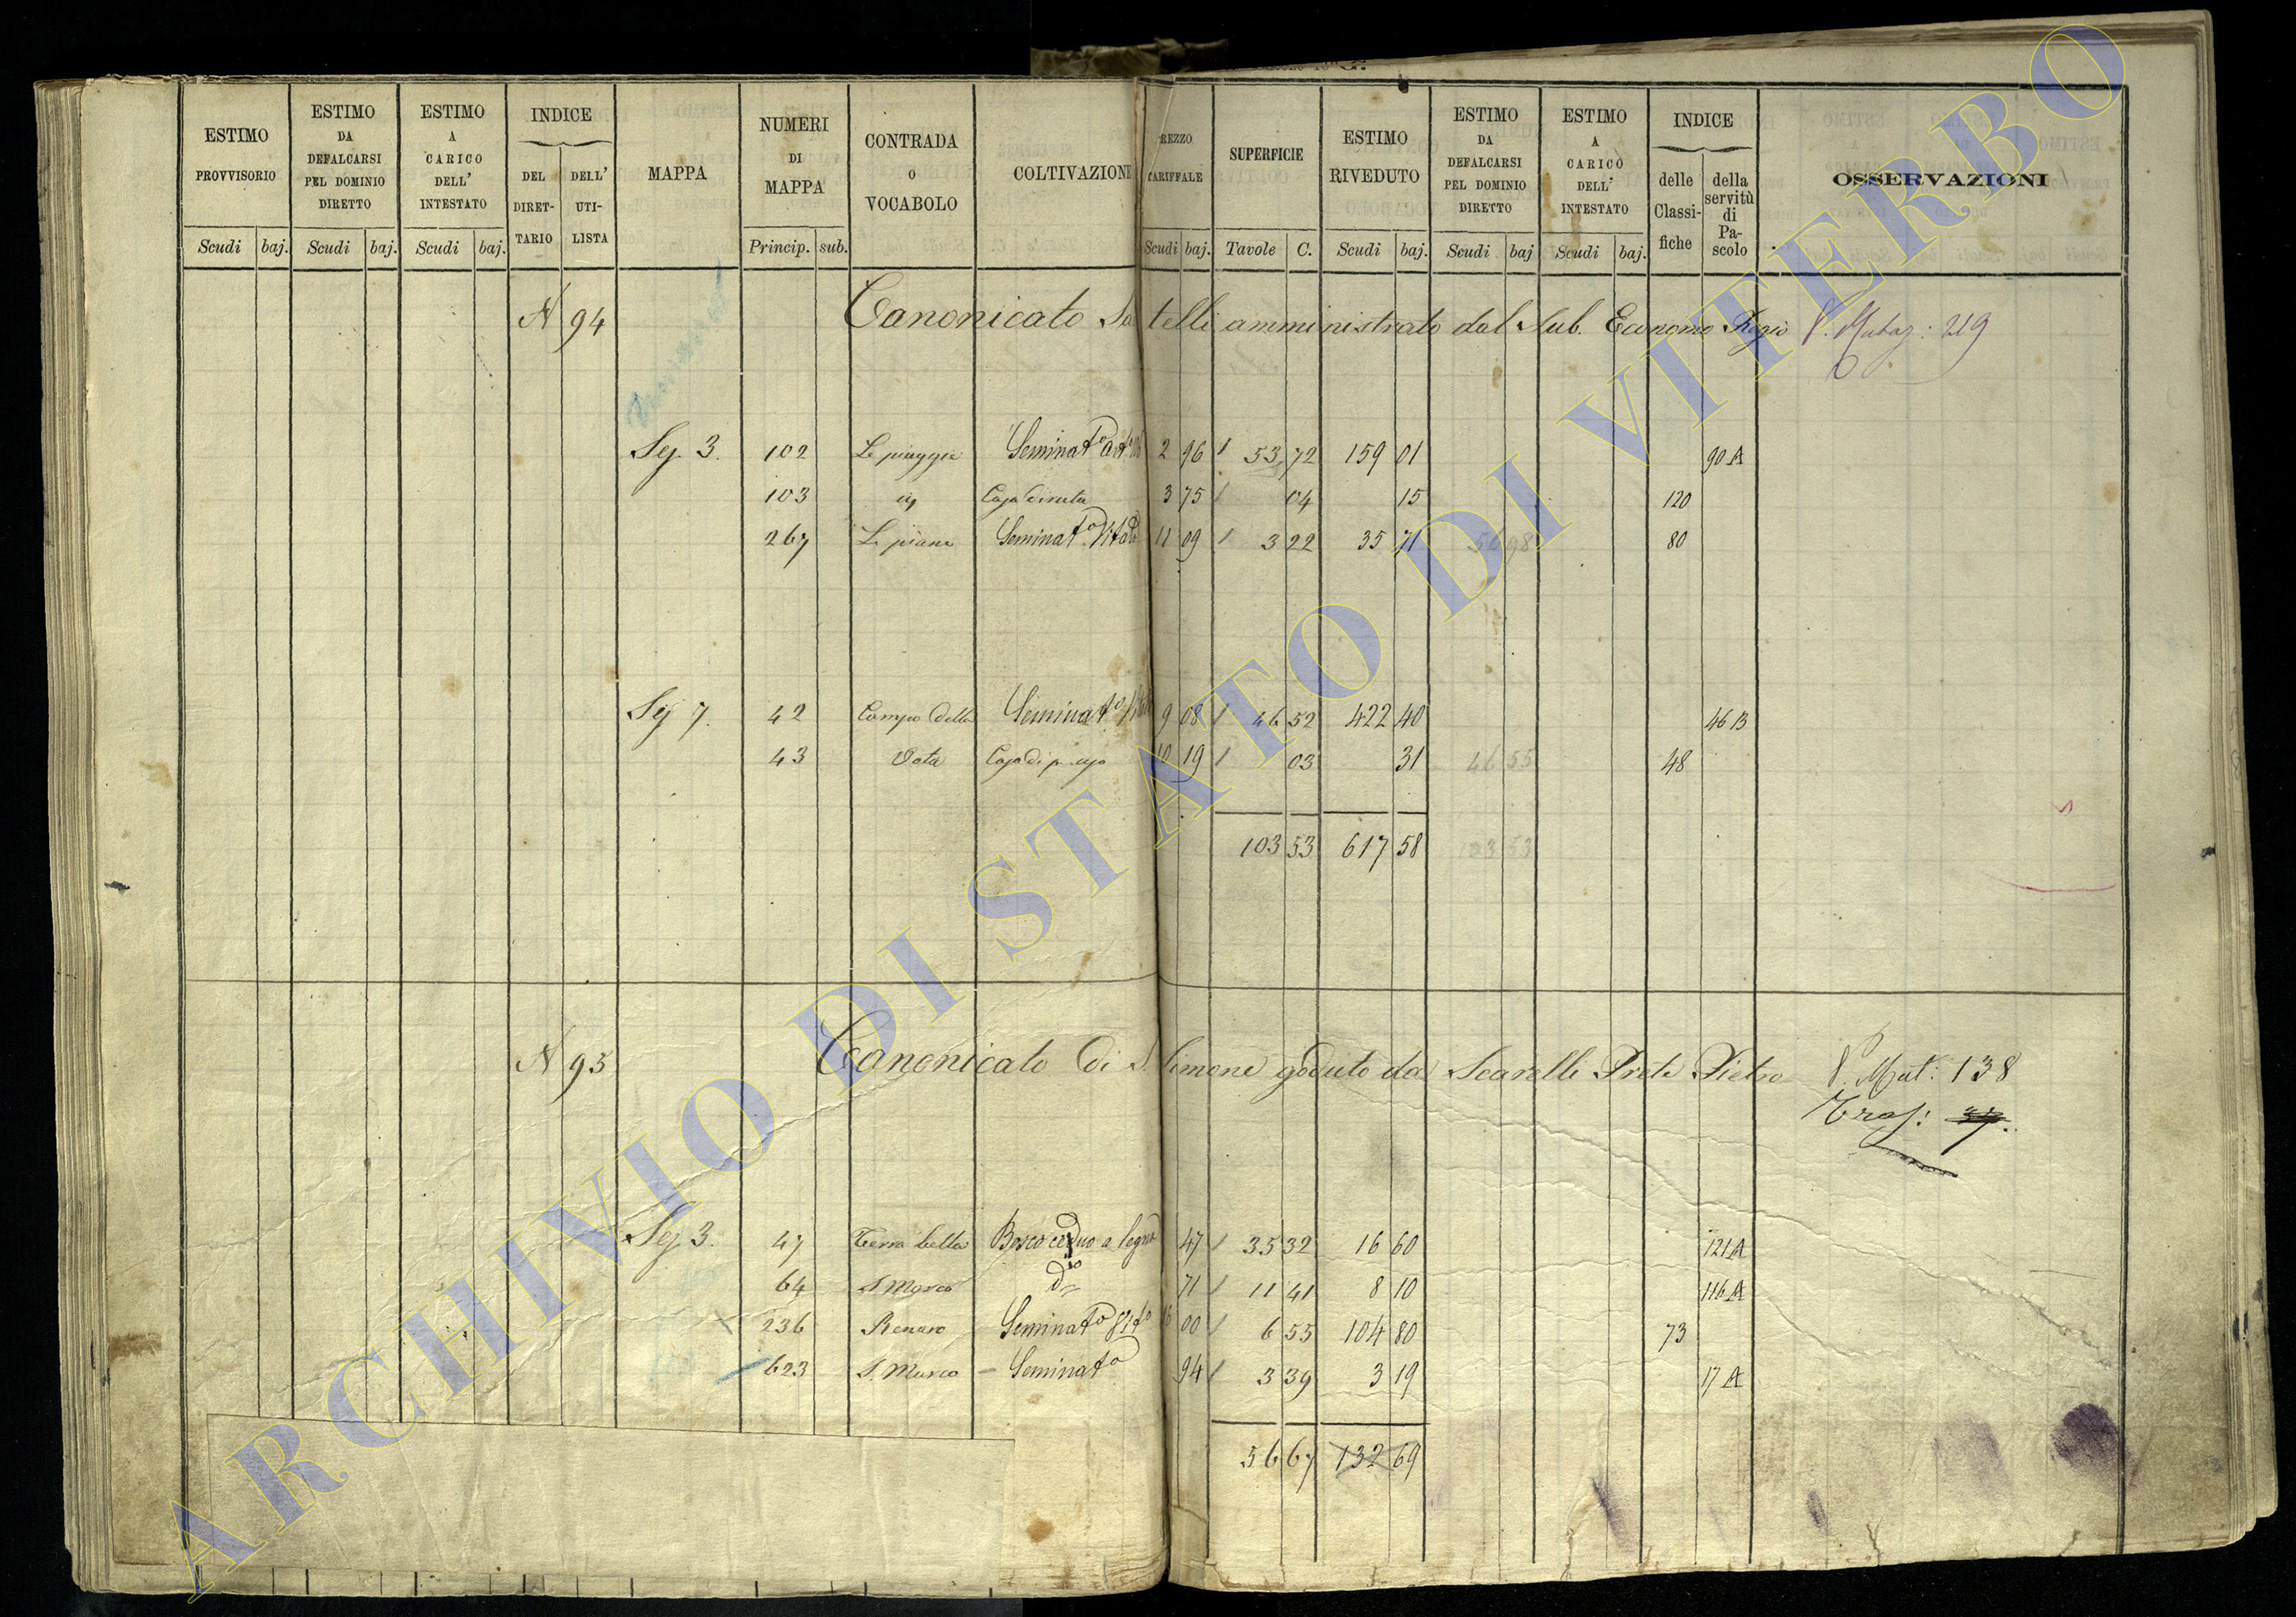 ESTIMO PROVVISORIO Scudi baj.
ESTIMO DA DEFALCARSI PEL DOMINIO DIRETTO Scudi baj.
ESTIMO A CARICO DELL' INTESTATO Scudi baj.
INDICE DEL DIRETTARIO DELL' UTILISTA
MAPPA
NUMERI DI MAPPA Princip. sub.
CONTRADA O VOCABOLO
COLTIVAZIONE
REZZO TARIFFALE Scudi baj.
SUPERFICIE Tavole C.
ESTIMO RIVEDUTO Scudi baj.
ESTIMO DA DEFALCARSI PEL DOMINIO DIRETTO Scudi baj
ESTIMO A CARICO DELL' INTESTATO Scudi baj.
INDICE delle Classifiche della servitù di Pascolo
OSSERVAZIONI
N 94 Canonicato telli amministrato dal Sub. Economo Regio V. Mutaz: 219
Sez. 3. 102 Le piagge Seminat° 2 96 53 72 159 01 90 A
103 Casa diruta 3 75 04 15 120
267 Le piane Seminat° Vitato 11 09 3 22 35 71 80
Sez 7. 42 Campo della Seminat° 9 08 46 52 422 40 46 B
43 Vota Casa di 10 19 03 31 46 55 48
103 53 617 58 103 53
N 95 Canonicato di S. Simone goduto da Scarelli Prete Pietro V. Mut: 138
Tras: 37.
Sez 3. 47 Terra bella Bosco ceduo a legna 47 35 32 16 60 121 A
64 S. Marco d° 71 11 41 8 10 116 A
236 Renaro Seminat° Vit° 16 00 6 55 104 80 73
623 S. Marco Seminat° 94 3 39 3 19 17 A
56 67 132 69
ARCHIVIO DI STATO DI VITERBO